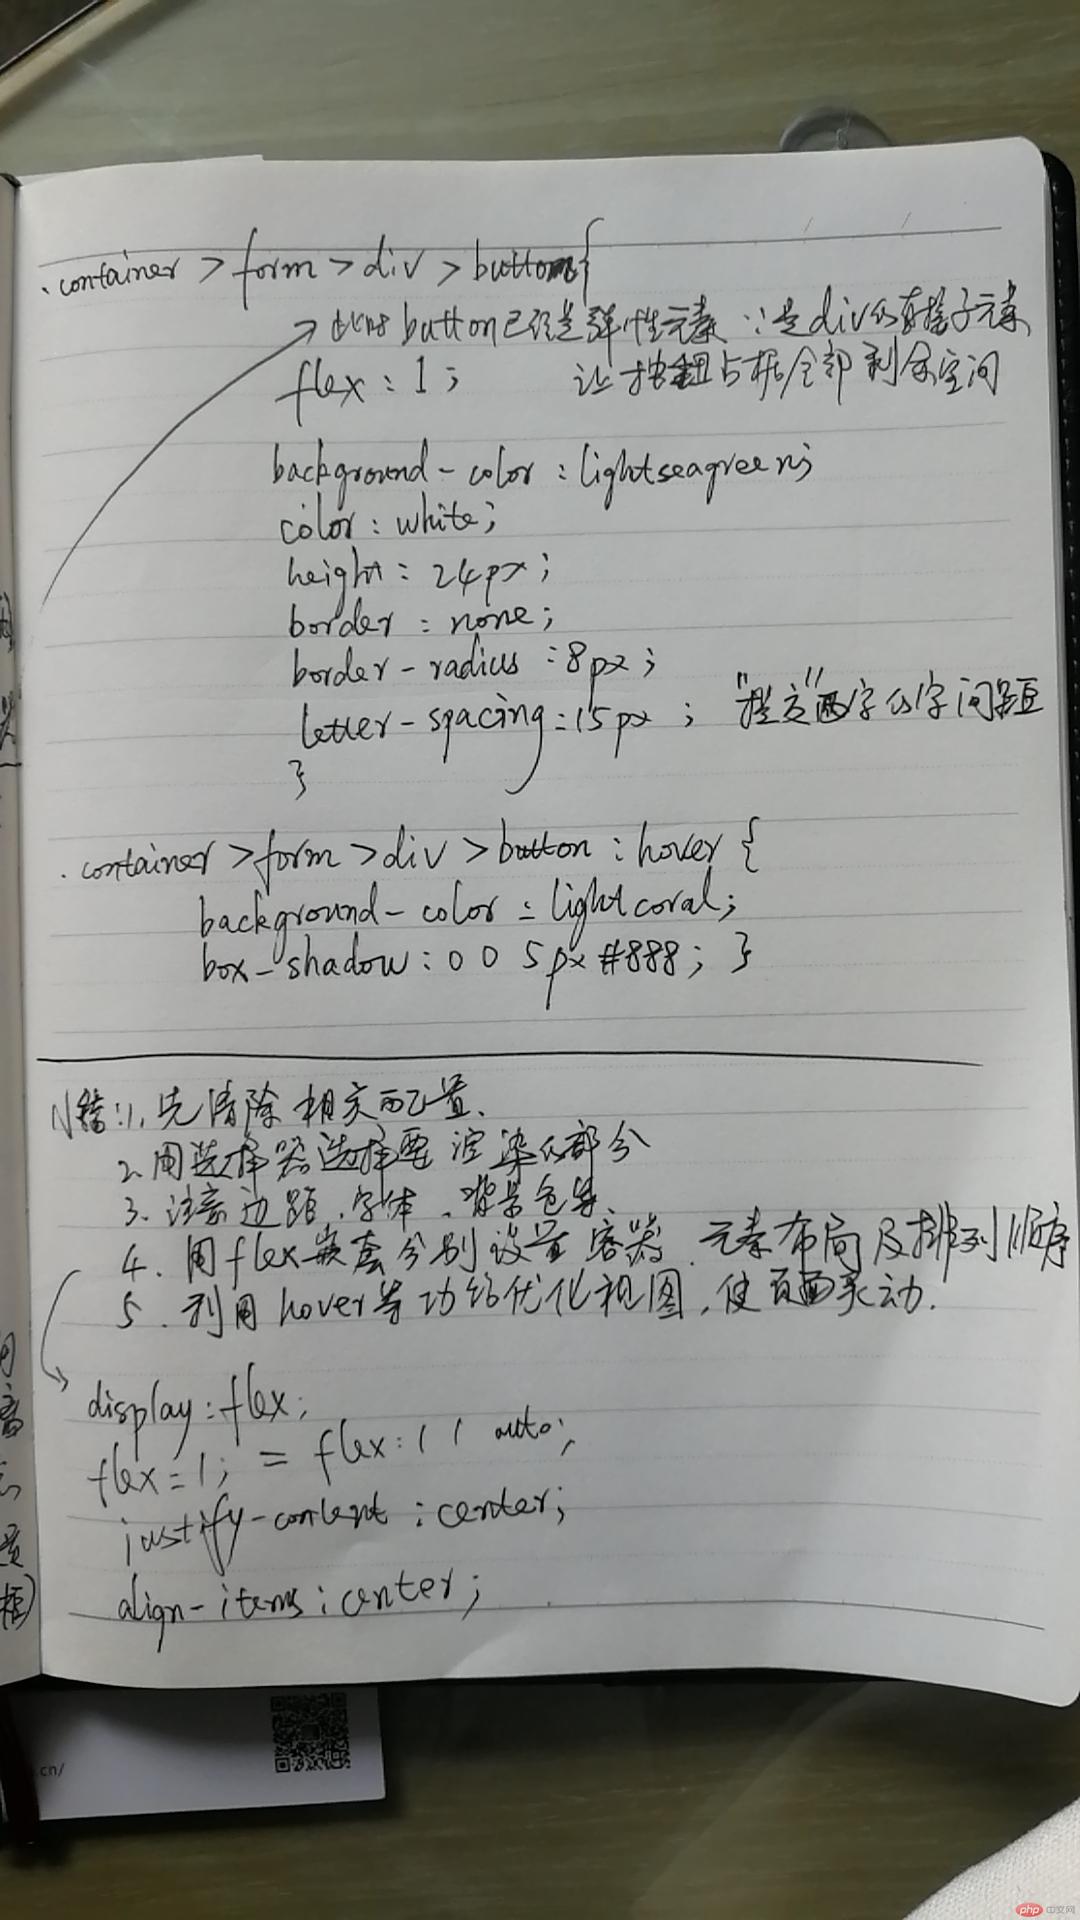 .container > form > div > button{
此时button已经是弹性元素 ∵是div的直接子元素
flex : 1 ; 让按钮占据全部剩余空间
background-color : lightseagreen;
color : white;
height : 24px ;
border : none ;
border-radius : 8px ;
letter-spacing : 15px ; "提交"两字的字间距
}
.container > form > div > button : hover {
background-color : lightcoral;
box-shadow : 0 0 5px #888 ; }
小结:1、先清除相关配置、
2、用选择器选择要渲染的部分
3、注意边距、字体、背景色等、
4、用flex嵌套分别设置容器、元素布局及排列顺序
5、利用hover等功能优化视图,使页面灵动.
display : flex;
flex = 1; = flex : 1 1 auto;
justify-content : center;
align-items : center ;
.cn/
php 中文网